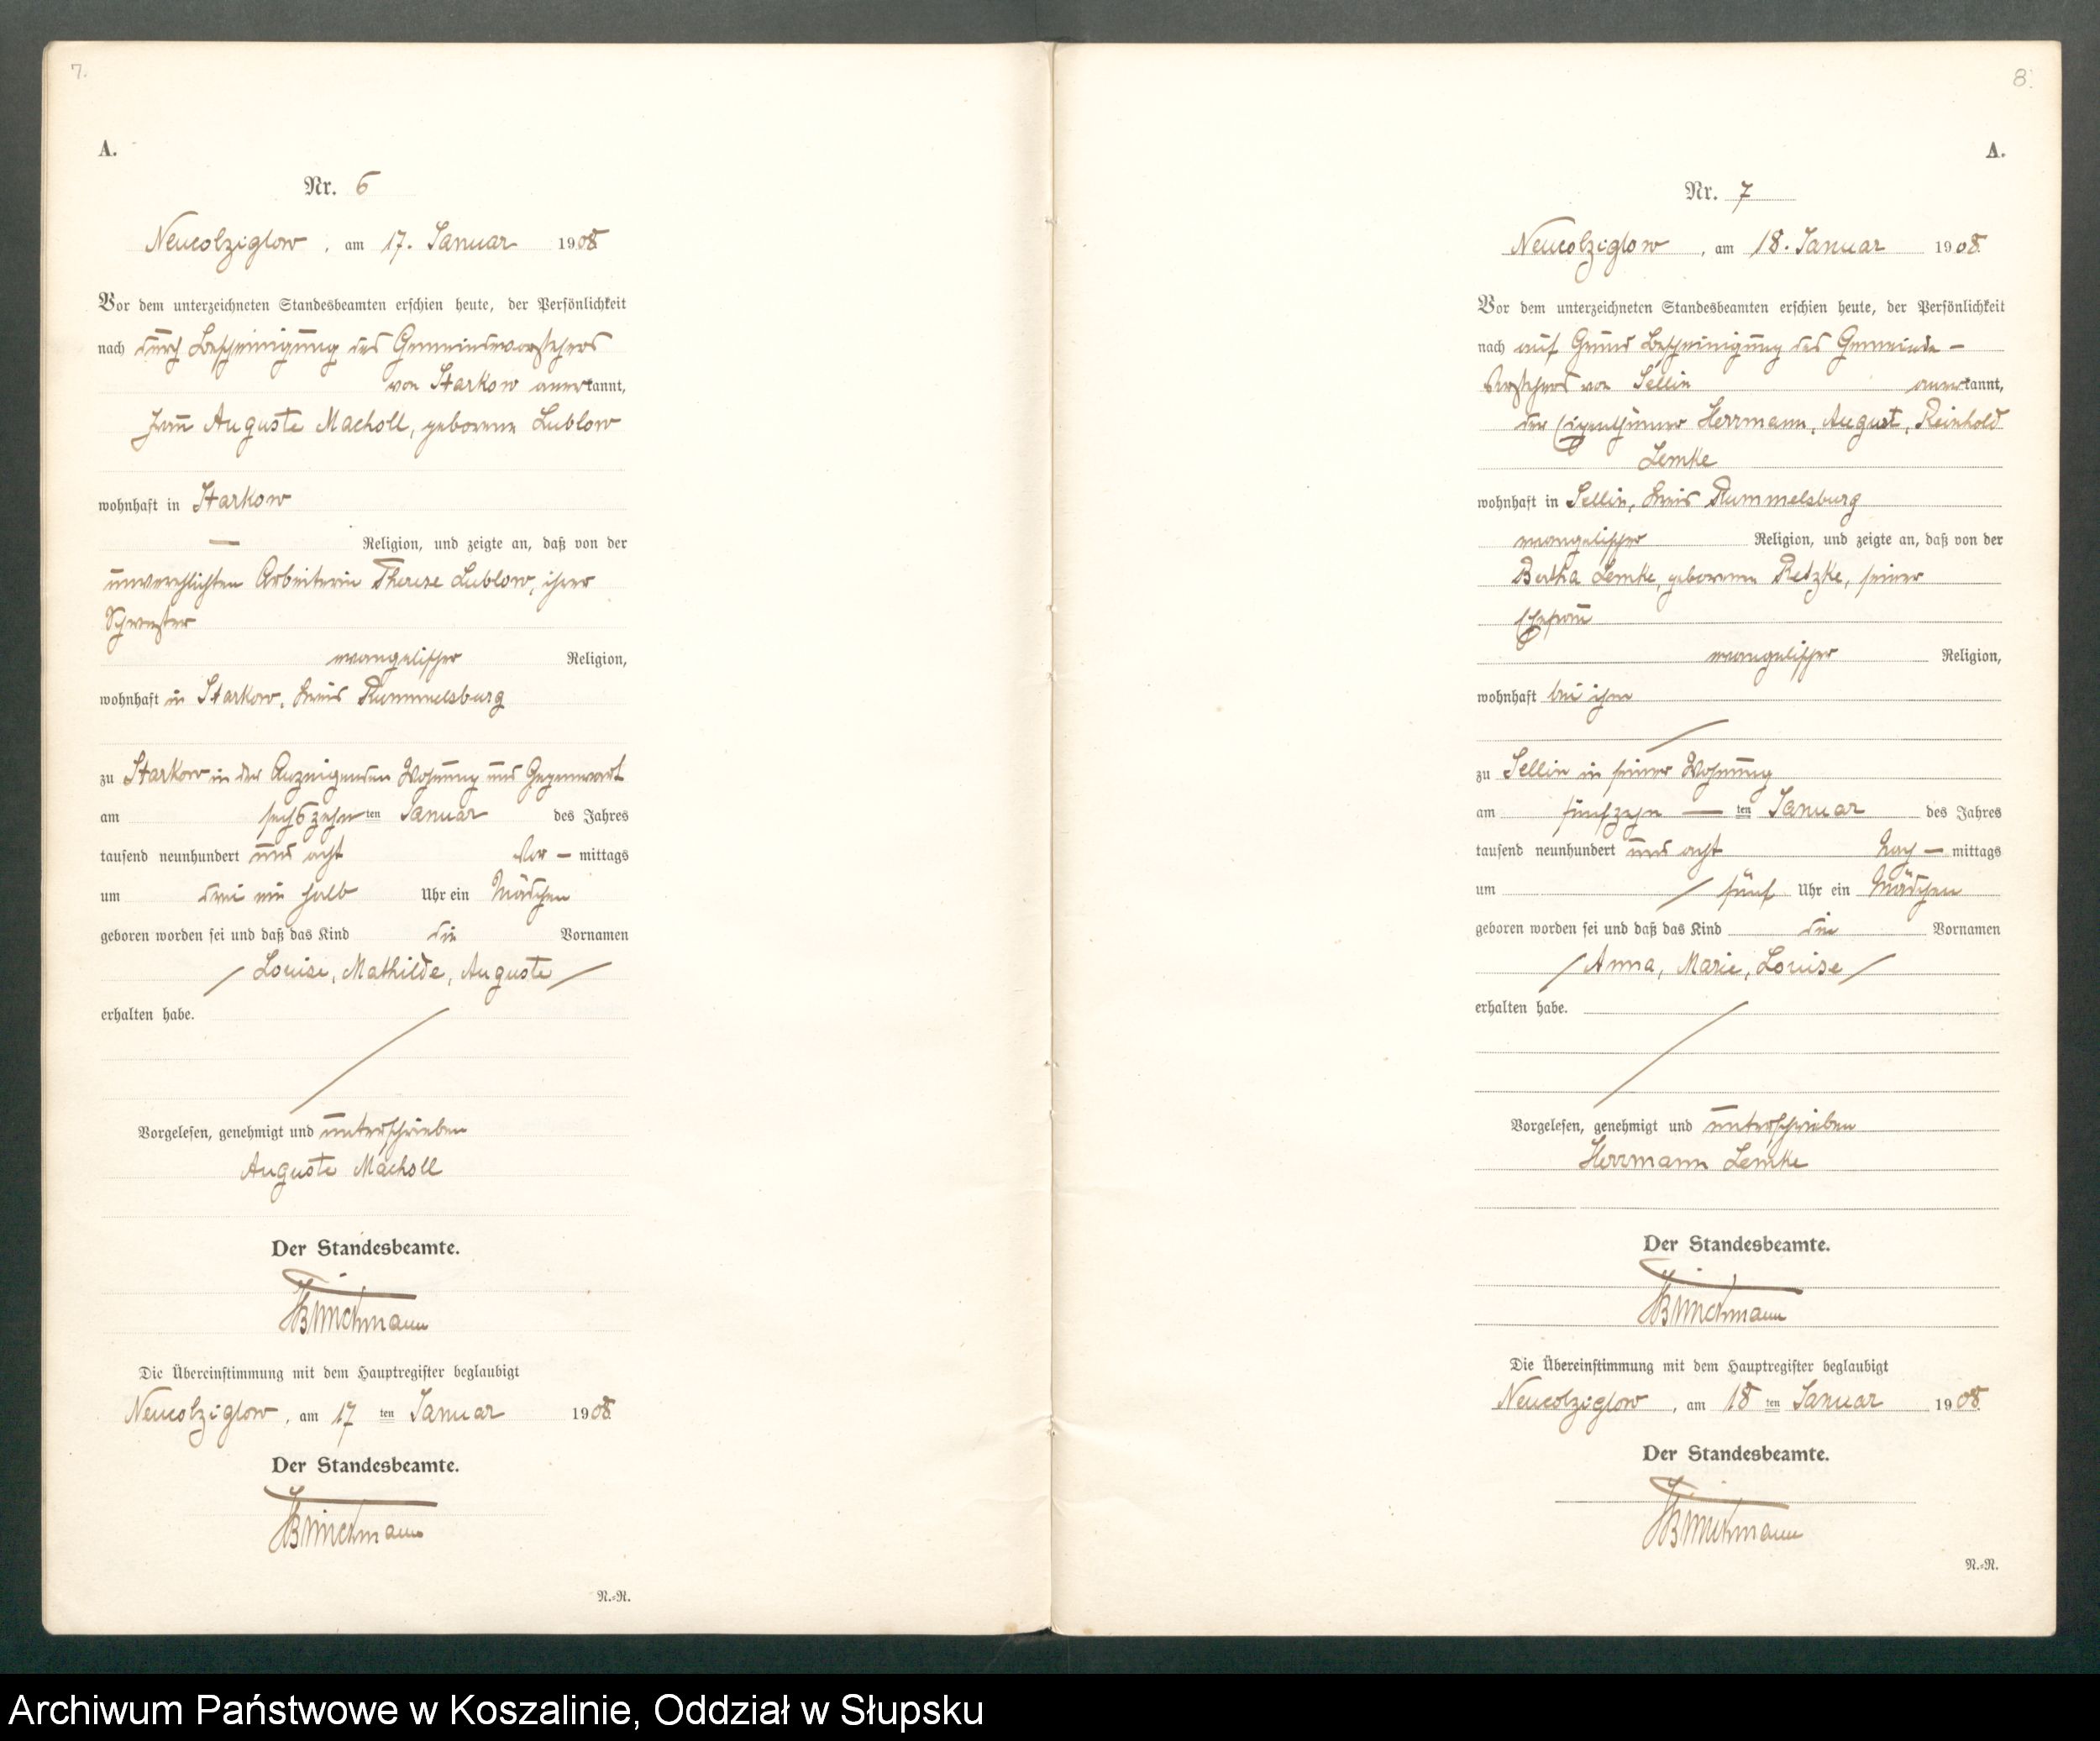 7.
A.
Nr. 6
Neucolziglow, am 17. Januar 1908
Vor dem unterzeichneten Standesbeamten erschien heute, der Persönlichkeit
nach durch Bescheinigung des Gemeindevorstehers
von Starkow anerkannt,
Frau Auguste Macholl, geborene Lublow
wohnhaft in Starkow
— Religion, und zeigte an, daß von der
unverehlichten Arbeiterin Therese Lublow, ihrer
Schwester
evangelischer Religion,
wohnhaft in Starkow, Kreis Rummelsburg
zu Starkow in der Anzeigenden Wohnung und Gegenwart
am sechszehnten Januar des Jahres
tausend neunhundert und acht Vor — mittags
um drei ein halb Uhr ein Mädchen
geboren worden sei und daß das Kind die Vornamen
Louise, Mathilde, Auguste
erhalten habe.
Vorgelesen, genehmigt und unterschrieben
Auguste Macholl
Der Standesbeamte.
Die Übereinstimmung mit dem Hauptregister beglaubigt
Neucolziglow, am 17 ten Januar 1908
Der Standesbeamte.
N.-N.
8.
A.
Nr. 7
Neucolziglow, am 18. Januar 1908.
Vor dem unterzeichneten Standesbeamten erschien heute, der Persönlichkeit
nach auf Grund Bescheinigung des Gemeinde-
Vorstehers von Sellin anerkannt,
der Eigenthümer Herrmann, August, Reinhold
Lemke
wohnhaft in Sellin, Kreis Rummelsburg
evangelischer Religion, und zeigte an, daß von der
Bertha Lemke, geborenen Retzke, seiner
Ehefrau
evangelischer Religion,
wohnhaft bei ihm
zu Sellin in seiner Wohnung
am fünfzehn — ten Januar des Jahres
tausend neunhundert und acht Nach — mittags
um fünf Uhr ein Mädchen
geboren worden sei und daß das Kind die Vornamen
Anna, Marie, Louise
erhalten habe.
Vorgelesen, genehmigt und unterschrieben
Herrmann Lemke
Der Standesbeamte.
Die Übereinstimmung mit dem Hauptregister beglaubigt
Neucolziglow, am 18 ten Januar 1908.
Der Standesbeamte.
N.-N.
Archiwum Państwowe w Koszalinie, Oddział w Słupsku